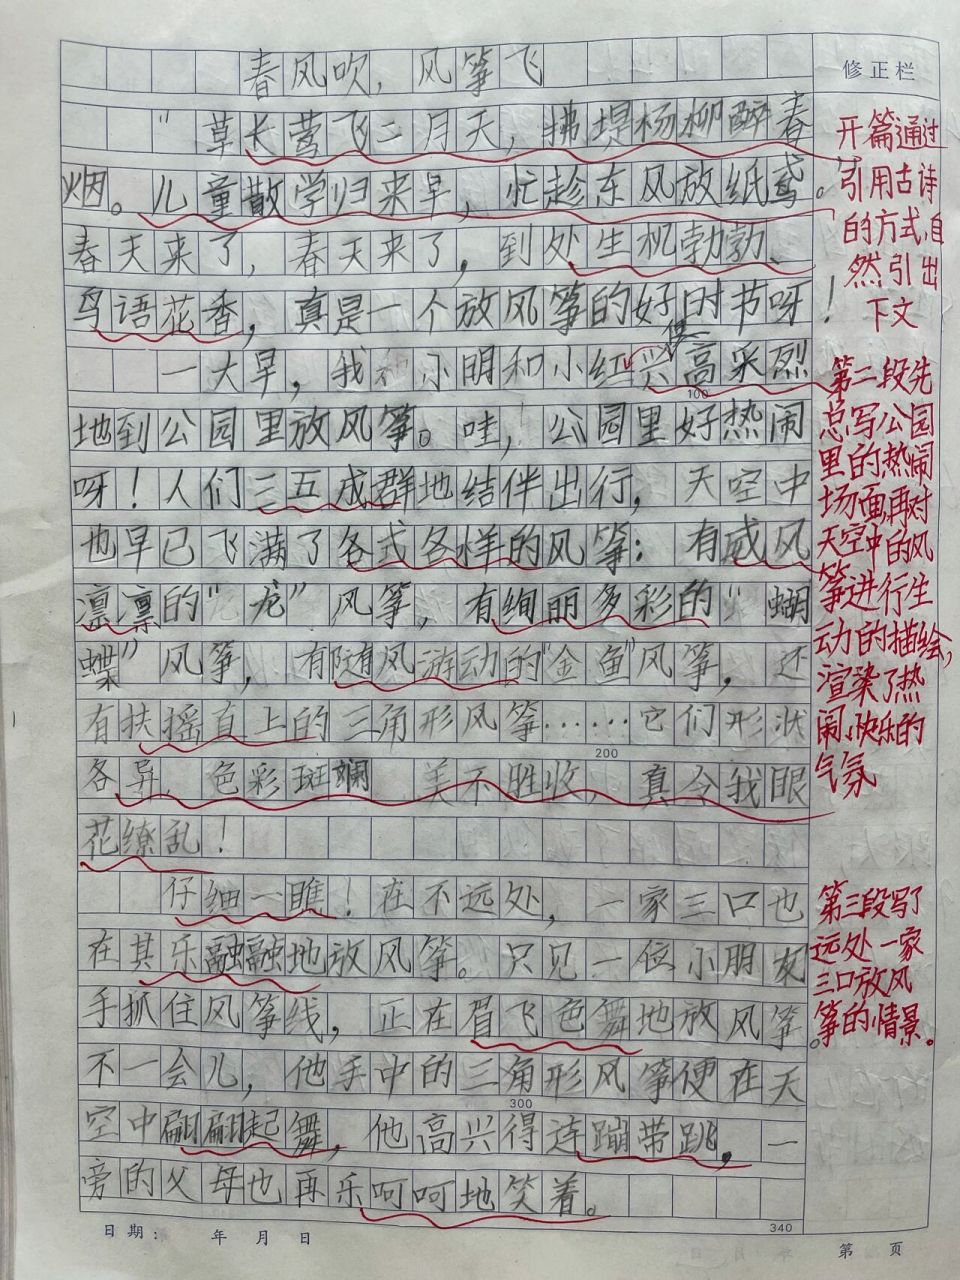 春风吹，风筝飞
修正栏
“草长莺飞二月天，拂堤杨柳醉春
烟。儿童散学归来早，忙趁东风放纸鸢。”
春天来了，春天来了，到处生机勃勃、
鸟语花香，真是一个放风筝的好时节呀！
一大早，我和小明和小红便兴高采烈
100
地到公园里放风筝。哇，公园里好热闹
呀！人们三五成群地结伴出行，天空中
也早已飞满了各式各样的风筝：有威风
凛凛的“龙”风筝，有绚丽多彩的“蝴
蝶”风筝，有随风游动的“金鱼”风筝，还
有扶摇直上的三角形风筝……它们形状
200
各异，色彩斑斓，美不胜收，真令我眼
花缭乱！
仔细一瞧！在不远处，一家三口也
在其乐融融地放风筝。只见一位小朋友
手抓住风筝线，正在眉飞色舞地放风筝。
不一会儿，他手中的三角形风筝便在天
300
空中翩翩起舞，他高兴得连蹦带跳，一
旁的父母也再乐呵呵地笑着。
340
日期： 年 月 日
第 页
开篇通过
引用古诗
的方式，自
然引出
下文
第二段先
总写公园
里的热闹
场面，再对
天空中的风
筝进行生
动的描绘，
渲染了热
闹、快乐的
气氛
第三段写了
远处一家
三口放风
筝的情景。